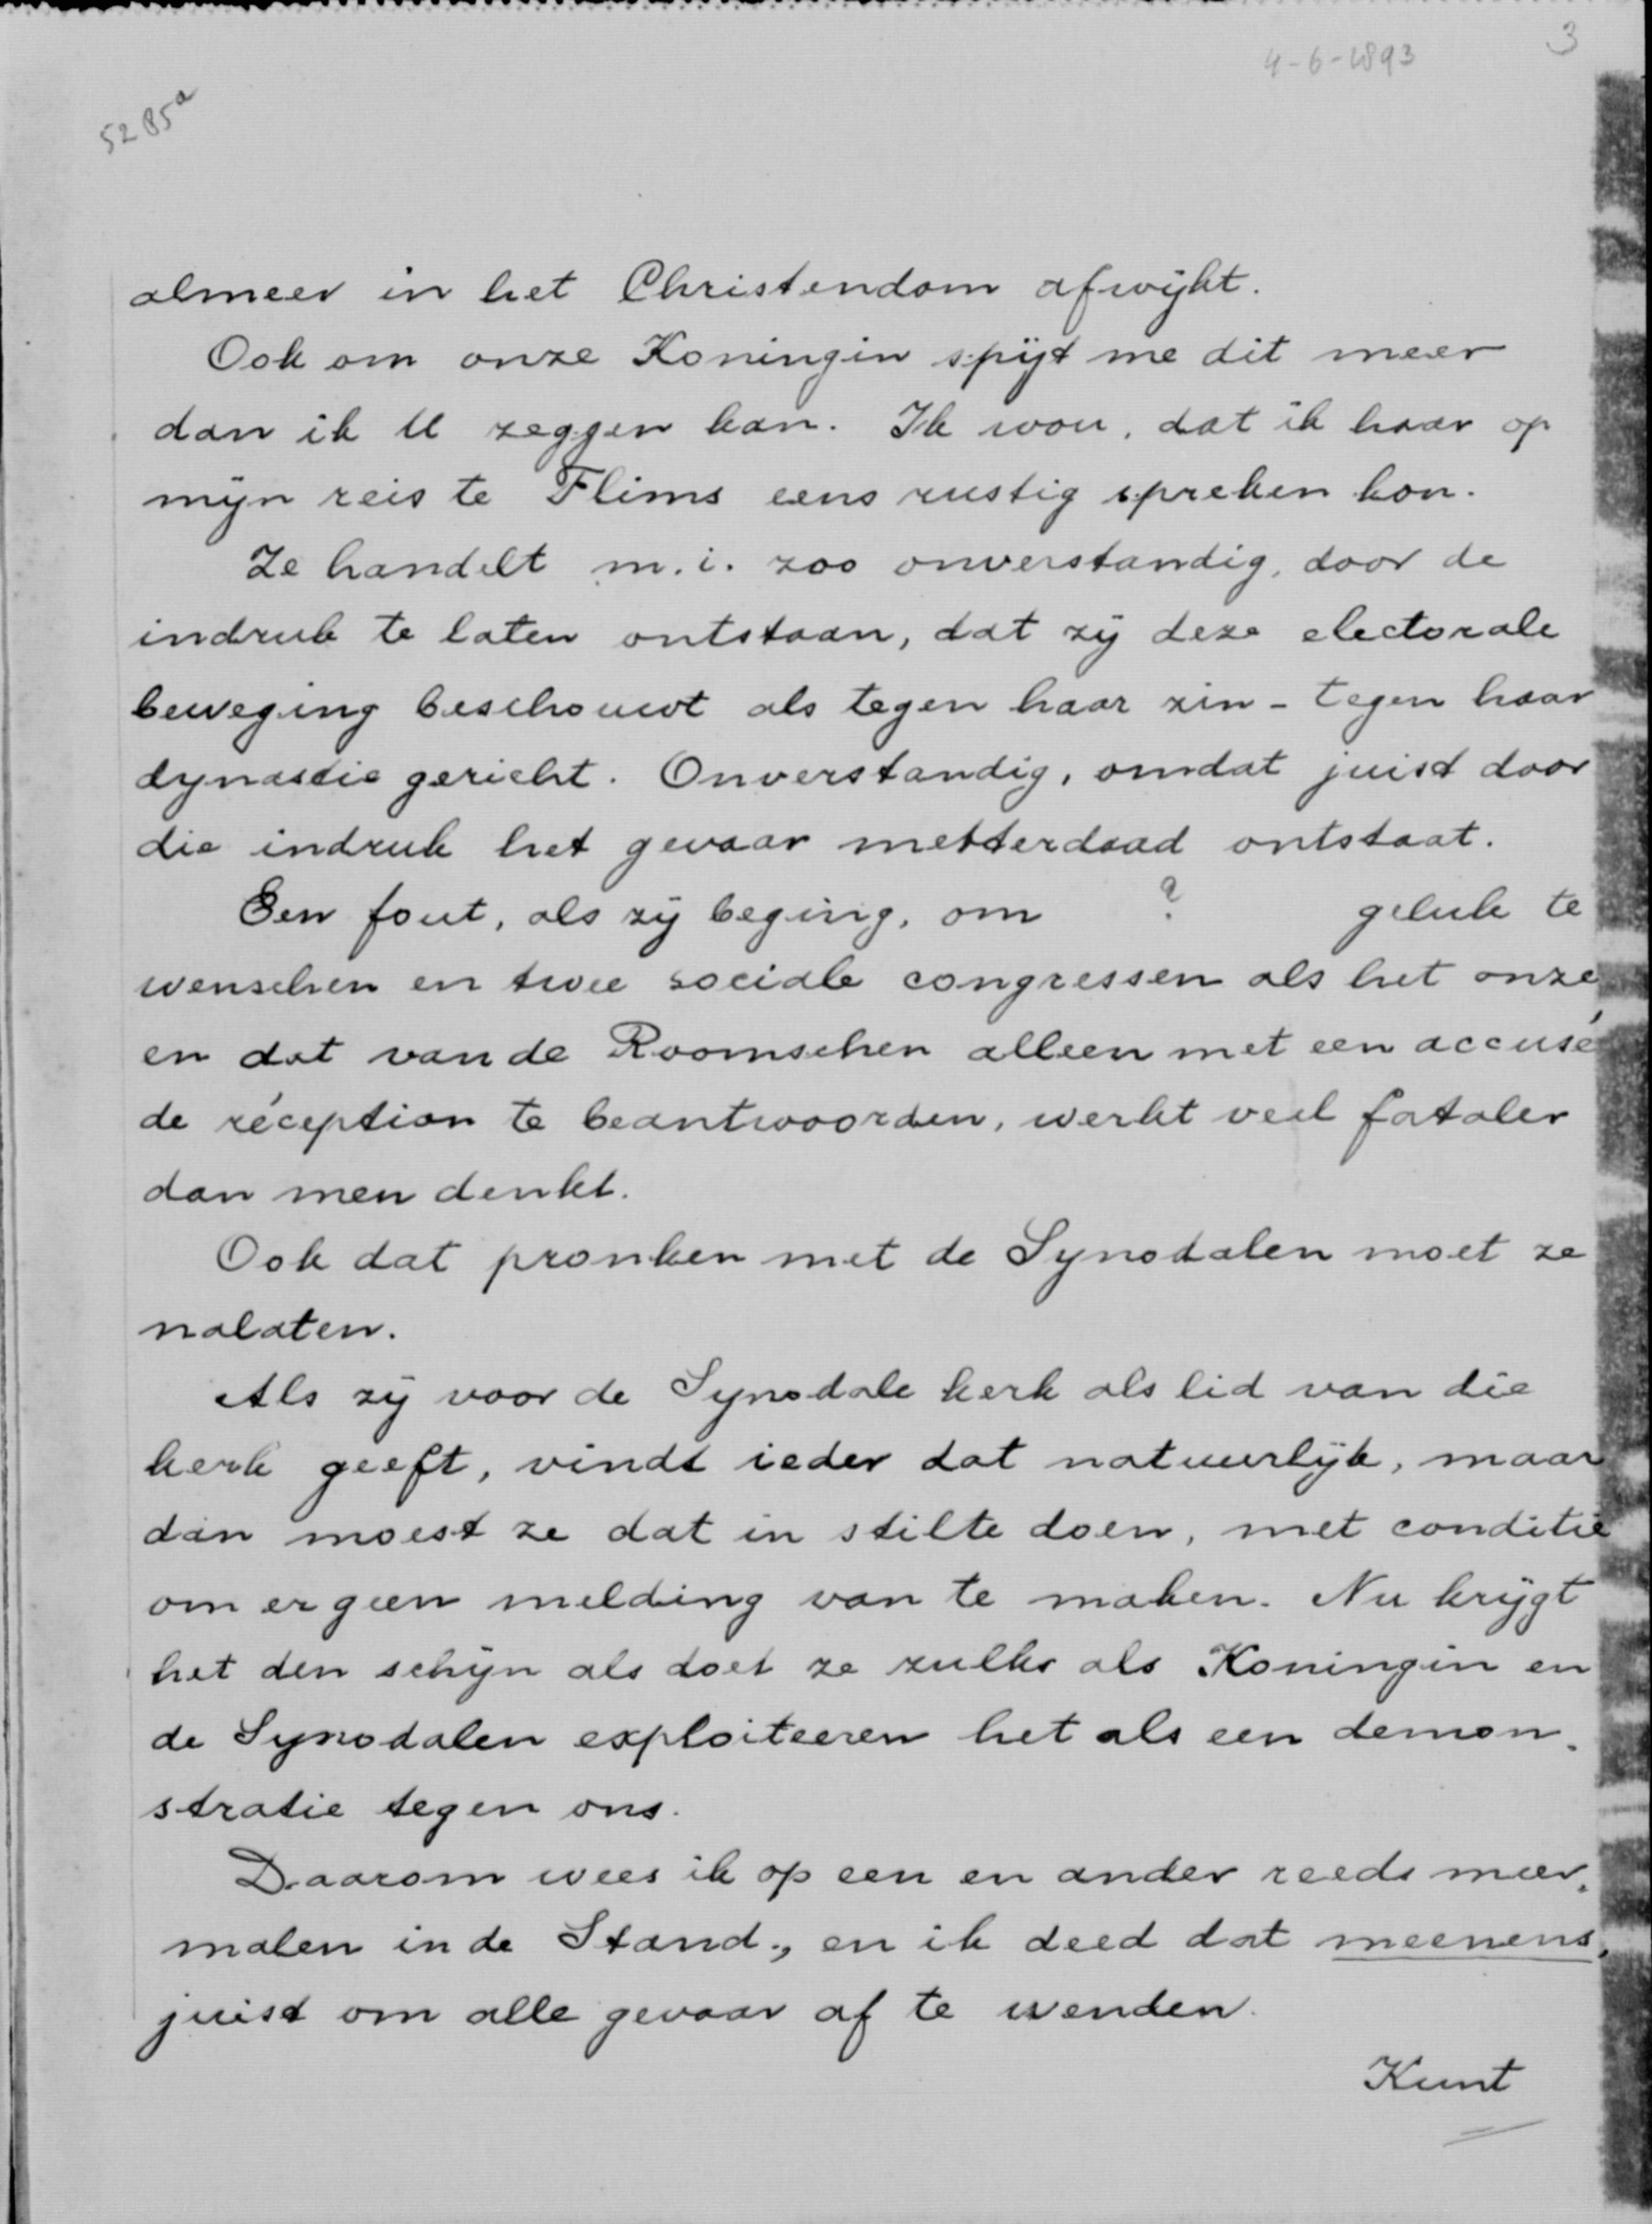 4-6-1893
3
5285a
almeer in het Christendom afwijkt.
Ook om onze Koningin spijt me dit meer
dan ik U zeggen kan. Ik wou, dat ik haar op
mijn reis te Flims eens rustig spreken kon.
Ze handelt m.i. zoo onverstandig, door de
indruk te laten ontstaan, dat zij deze electorale
beweging beschouwt als tegen haar zin - tegen haar
dynastie gericht. Onverstandig, omdat juist door
die indruk het gevaar metterdaad ontstaat.
Een fout, als zij beging, om ? geluk te
wenschen en twee sociale congressen als het onze
en dat van de Roomschen alleen met een accusé
de réception te beantwoorden, werkt veel fataler
dan men denkt.
Ook dat pronken met de Synodalen moet ze
nalaten.
Als zij voor de Synodale kerk als lid van die
kerk geeft, vindt ieder dat natuurlijk, maar
dan moest ze dat in stilte doen, met conditie
om er geen melding van te maken. Nu krijgt
het den schijn als doet ze zulks als Koningin en
de Synodalen exploiteeren het als een demon-
stratie tegen ons.
Daarom wees ik op een en ander reeds meer-
malen in de Stand., en ik deed dat meenens,
juist om alle gevaar af te wenden.
Kunt